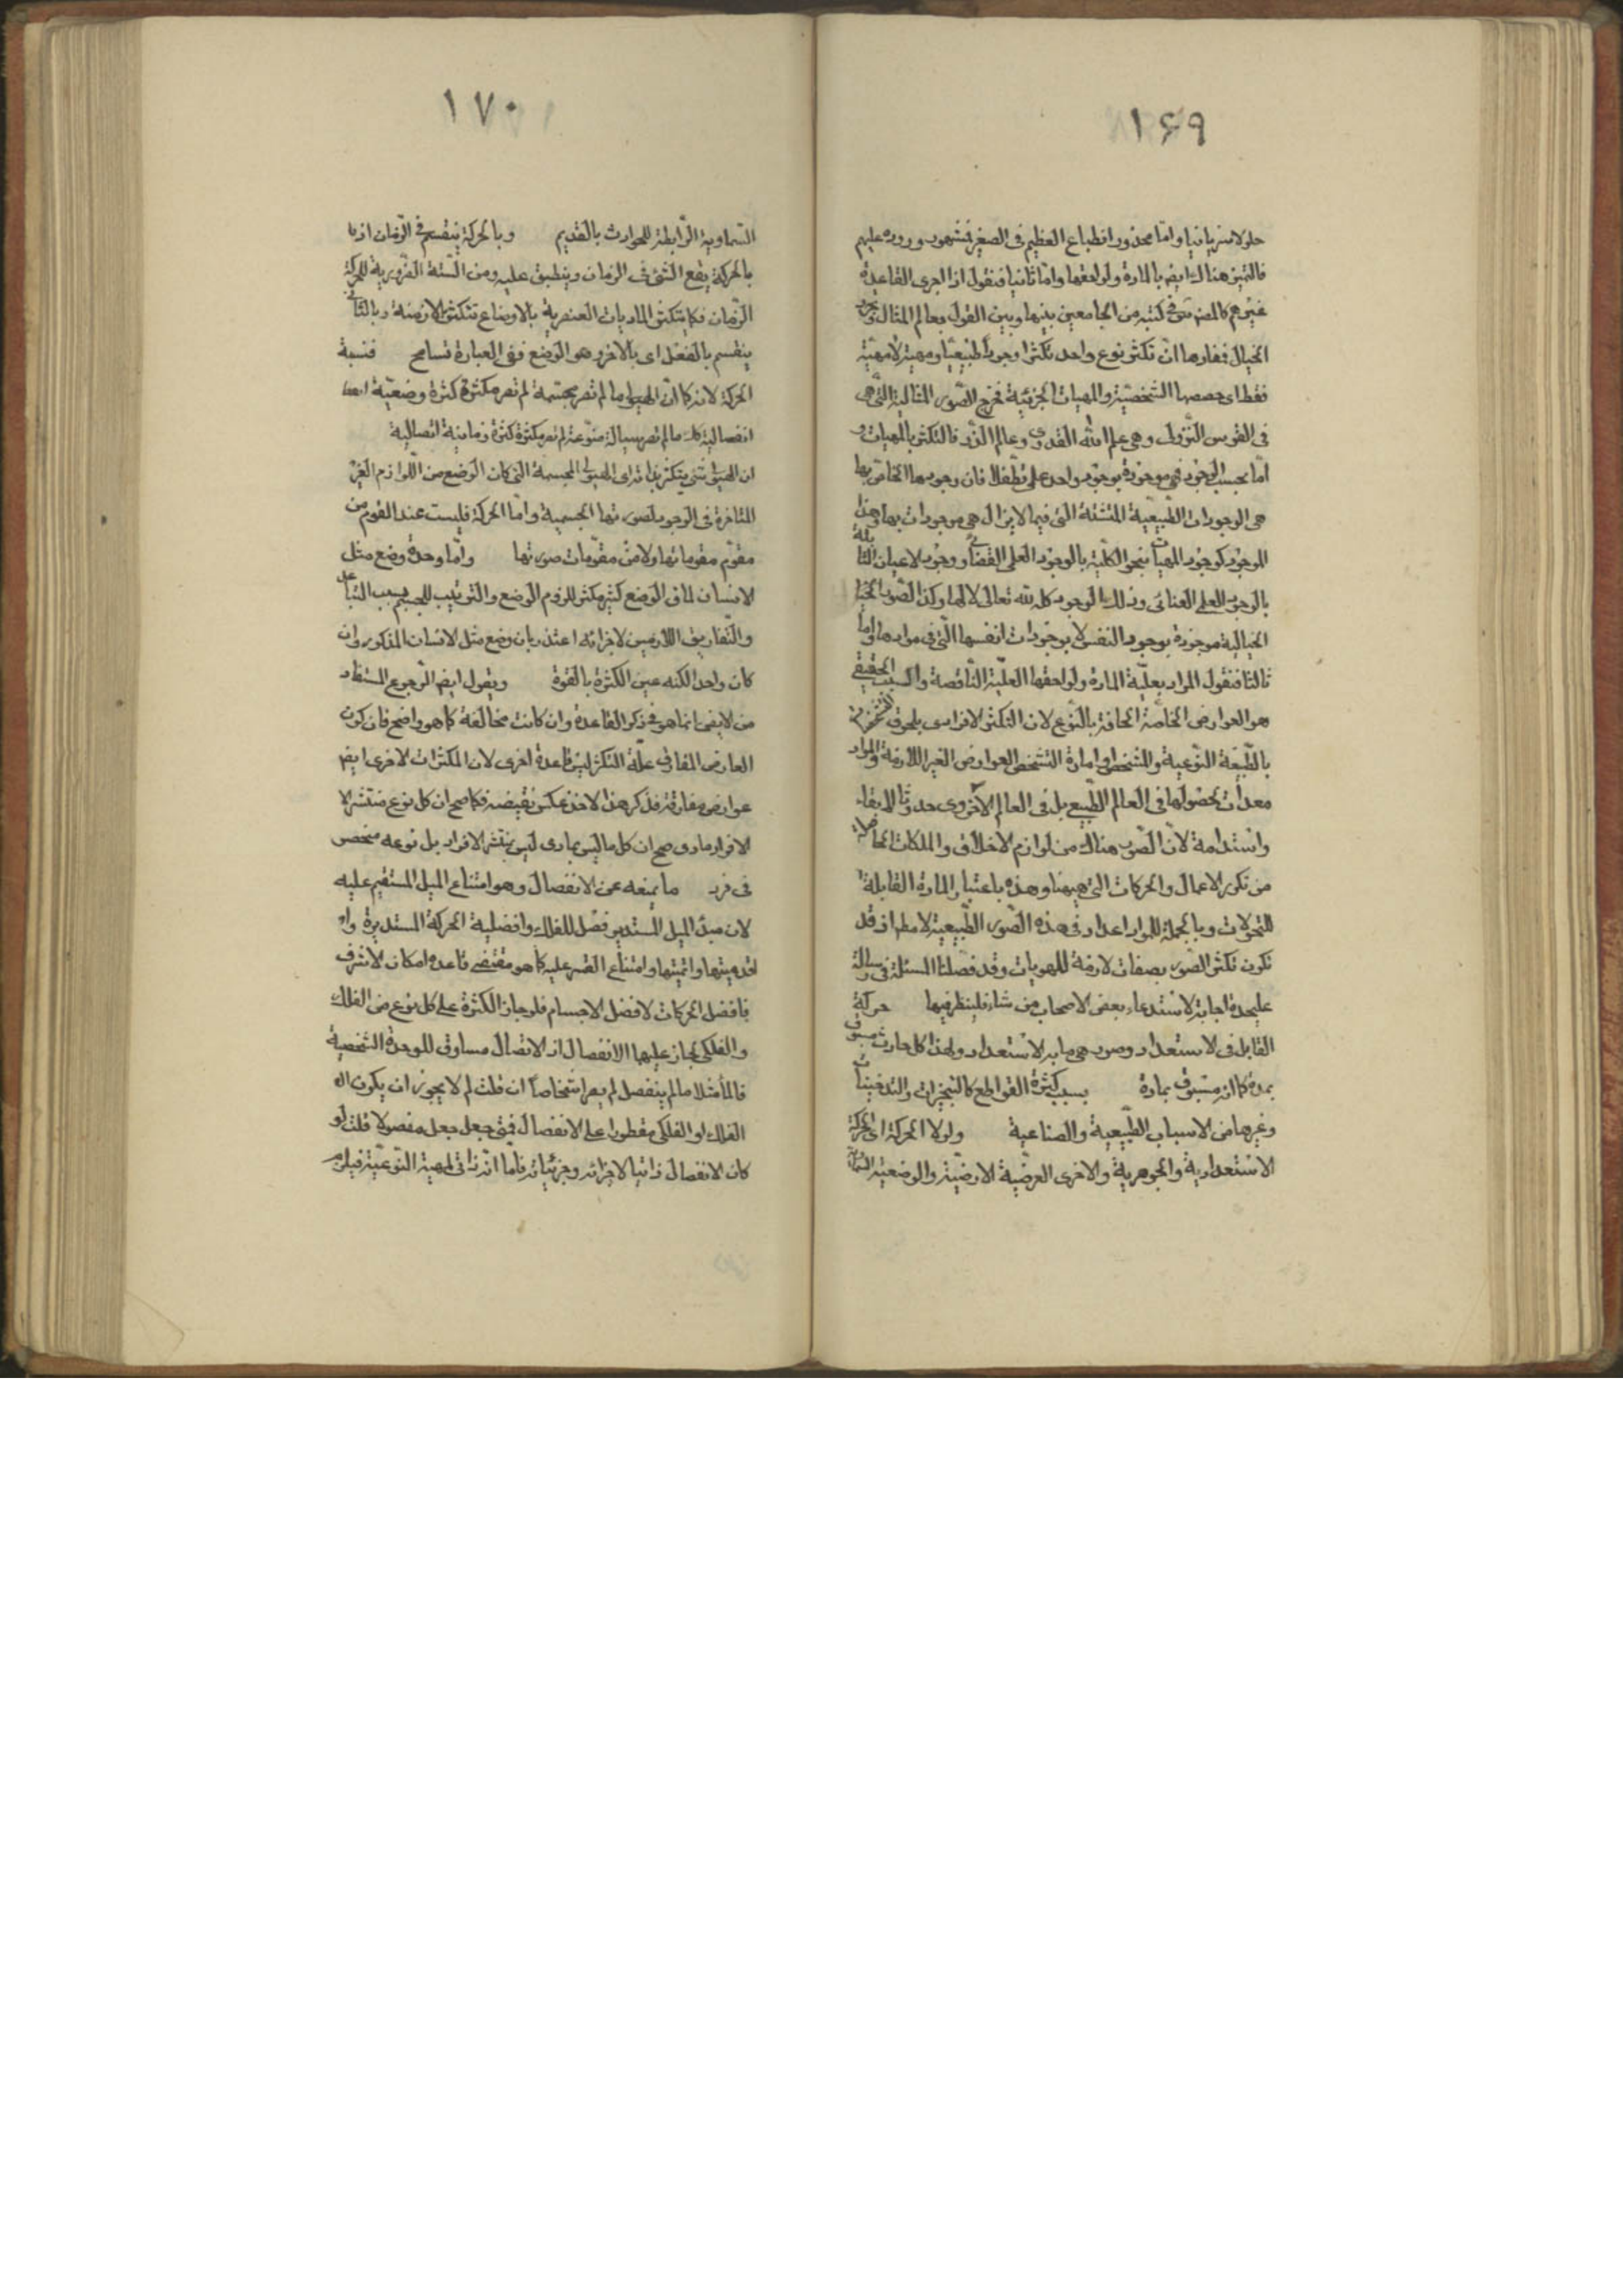 ۱۶۹
حلولا سريانيا واما محذور انطباع العظيم فى الصغير فمشهور وروده عليهم
فالتميز هناك ايضا بالمادة ولواحقها واما ثانيا فنقول اذا اجرى القاعدة
غيرهم كالمصنف فى كتبه من الجامعين بينها وبين القول بعالم المثال وتجرد
الخيال فمفادها ان تكثر نوع واحد تكثرا وجوديا طبيعيا ومهية لا مهية
فقط اى حصصها الشخصية والمهيات الجزئية فخرج الصور المثالية التى هى
فى القوس النزولى وهى علم الله القدرى وعالم الذر فالتكثر بالمهيات و
اما بحسب الوجود فهى موجودة بوجود واحد على تطفلا فان وجودها الخاص بها
هى الوجودات الطبيعية المشتتة التى فيما لا يزال هى موجودات بها وهذا
الوجود كوجود المهيات بنحو الكلية بالوجود العلمى القضائى ووجود الاعيان الثابتة
بالوجود العلمى العنائى وذلك الوجود كله لله تعالى لا لها وكذا الصور
الخيالية موجودة بوجود النفس لا بوجودات انفسها التى فى موادها واما
ثالثا فنقول المراد بعلية المادة ولواحقها العلية الناقصة والسبب الحقيقى
هو العوارض الخاصة الحافة بالنوع لان التكثر الافرادى بلحوق
بالطبيعة النوعية والمشخص او امارة التشخص العوارض الغير اللازمة والمواد
معدات لحصولها فى العالم الطبيعى بل فى العالم الاخروى حدوثا لا بقاء
واستدامة لان الصور هناك من لوازم الاخلاق والملكات الحاصلة
من تكرر الاعمال والحركات التى ههنا وهذه باعتبار المادة القابلة
للتحولات وبالجملة للمواد اعداد فى هذه الصور الطبيعية لا مطلقا وقد
تكون تكثر الصور بصفات لازمة للهويات وقد فصلنا المسئلة فى رسالة
عليحدة اجابة لاستدعاء بعض الاصحاب من شاء فلينظر فيها حركة
القابل فى الاستعداد وصور هى ما به الاستعداد ولهذا كل حادث مسبوق
بمدة كما انه مسبوق بمادة بسبب كثرة القواطع كالتبخيرات والتدخينات
وغيرها من الاسباب الطبيعية والصناعية ولولا الحركة اى الحركة
الاستعدادية والجوهرية والاخرى العرضية الارضية والوضعية
۱۷۰
السماوية الرابطة للحوادث بالقديم وبالحركة ينقسم فى الزمان اذ بالحركة
يقع الشئ فى الزمان وينطبق عليه ومن الستة الضرورية للحركة
الزمان فكما تتكثر الماديات العنصرية بالاوضاع تتكثر بالازمنة وبالثانى
ينقسم بالفعل اى بالاخر وهو الوضع ففى العبارة تسامح فنسبة
الحركة لانه كما ان الهيولى ما لم تصر مجسمة لم تصر مكثرة كثرة وضعية
انفصالية كذلك ما لم تصر سيالة متنوعة لم تصر مكثرة كثرة زمانية اتصالية
ان الهيولى شئ يتكثر بذاته اى الهيولى المجسمة التى كان الوضع من اللوازم الغير
المتاخرة فى الوجود لصورتها الجسمية واما الحركة فليست عند القوم من
مقوم مقوماتها ولا من مقومات صورتها واما وحدة وضع مثل
الانسان لما فى الوضع كثير مكثر للزوم الوضع والترتيب للجسم بسبب التباعد
والتفاريق اللازمين لاجزائه اعتذر بان وضع مثل الانسان المذكور وان
كان واحدا لكنه عين الكثرة بالقوة ويقول ايضا الرجوع المستفاد
من لا ايضا انما هو فى ذكر القاعدة وان كانت مخالفة كما هو واضح فان كون
العارض المفارق علة التكثر ليس قاعدة اخرى لان المكثرات الاخرى ايضا
عوارض مفارقة فذكر هذا لاخذ عكس نقيضه فكما صح ان كل نوع منتشر الافراد
مادى صح ان كل ما ليس بمادى ليس بمنتشر الافراد بل نوعه منحصر
فى فرد ما يمنعه عن الانفصال وهو امتناع الميل المستقيم عليه
لان مبدء الميل المستدير فصل للفلك وافضلية الحركة المستديرة و
اقدميتها واتميتها وامتناع القسر عليه كما هو مقتضى قاعدة امكان الاشرف
فافضل الحركات لافضل الاجسام فلو جاز الكثرة على كل نوع من الفلك
والفلكى لجاز عليها الانفصال اذ الاتصال مساوق للوحدة الشخصية
فالماء مثلا ما لم ينفصل لم يصر اشخاصا ان قلت لم لا يجوز ان يكون
الفلك او الفلكى مفطورا على الانفصال فمتى جعل جعل مفصولا قلت لو
كان الانفصال ذاتيا لاجزائه وجزئياته فاما انه ذاتى لمهيته النوعية فيلزم